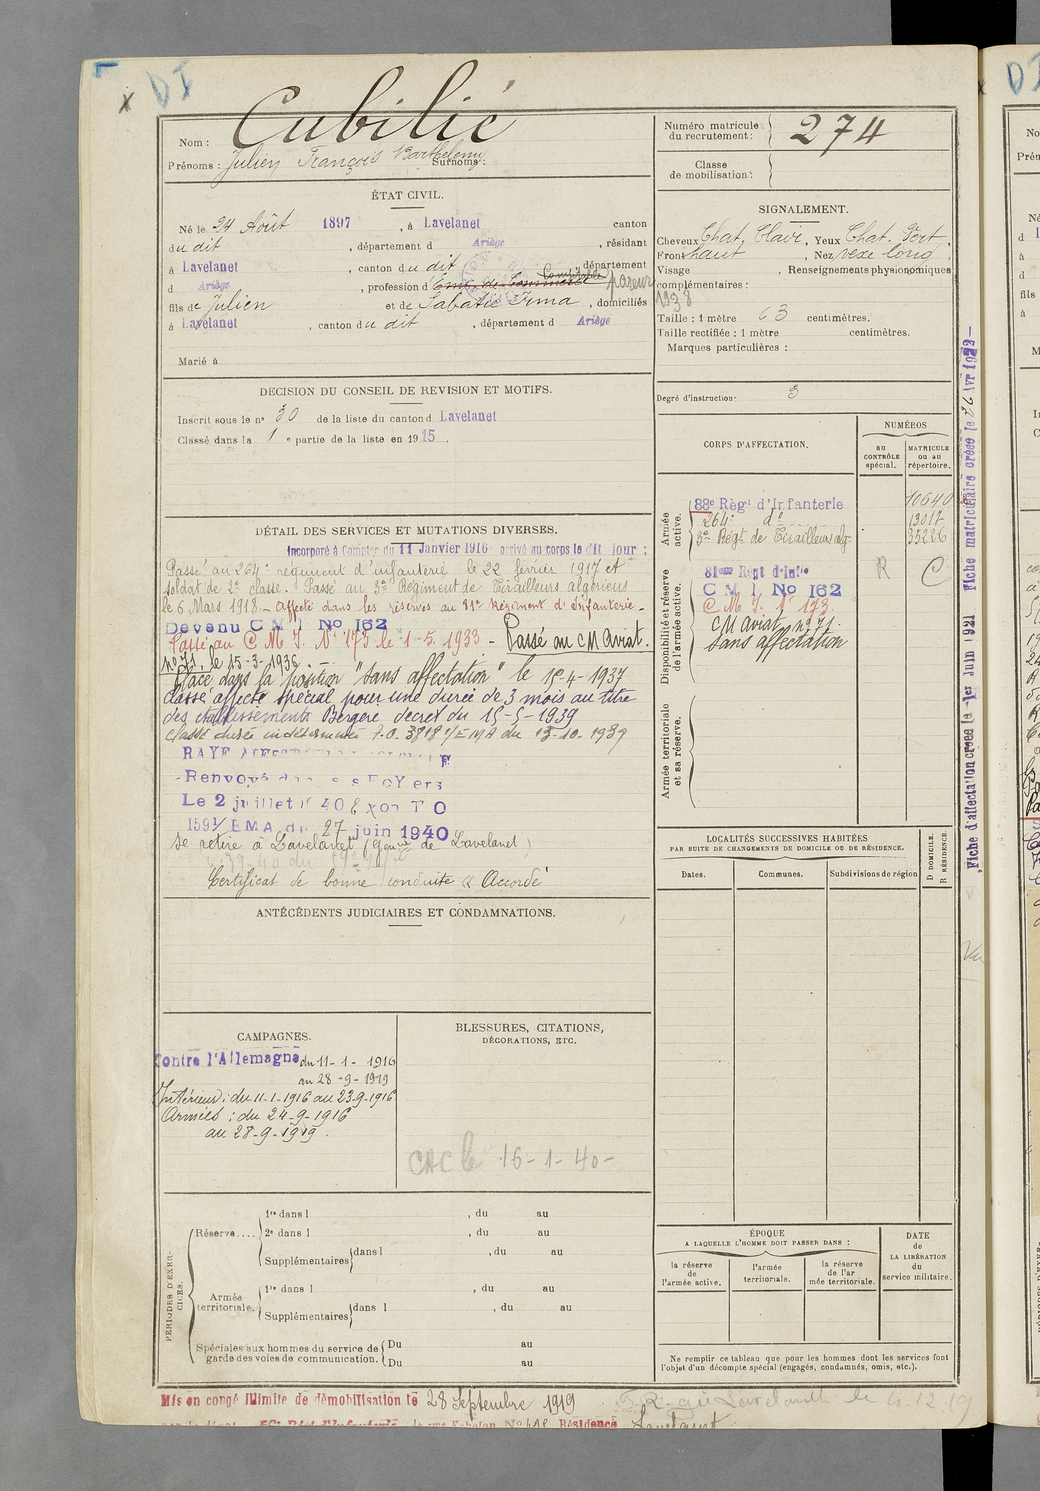 DI
Nom : Cubilié
Prénoms : Julien François Barthelemy Surnoms :
Numéro matricule du recrutement : 274
Classe de mobilisation :
ÉTAT CIVIL.
Né le 24 Août 1897, à Lavelanet canton
du dit, département d Ariège, résidant
à Lavelanet, canton du dit département
d Ariège, profession d Emp. de Commerce Comptable
fils de Julien et de Sabatié Irma, domiciliés
à Lavelanet, canton du dit, département d Ariège
Marié à
SIGNALEMENT.
Cheveux Chat. Clair, Yeux Chat. Vert,
Front haut, Nez vexe long,
Visage , Renseignements physionomiques
complémentaires :
1938
Taille : 1 mètre 63 centimètres.
Taille rectifiée : 1 mètre centimètres.
Marques particulières :
Degré d'instruction : 3
DECISION DU CONSEIL DE REVISION ET MOTIFS.
Inscrit sous le nº 30 de la liste du canton d Lavelanet
Classé dans la 1 e partie de la liste en 1915.
CORPS D'AFFECTATION.
NUMÉROS
au CONTRÔLE spécial.
MATRICULE ou au répertoire.
Armée active.
88e Règt d'Infanterie 10640
264e do 13017
3e Régt de Tirailleurs alg. 35226
Disponibilité et réserve de l'armée active.
81eme Regt d'Infie R C
C M I No 162
C M I. No 173
CM Aviat. nº 71.
Sans affectation
Armée territoriale et sa réserve.
DÉTAIL DES SERVICES ET MUTATIONS DIVERSES.
Incorporé à Compter du 11 Janvier 1916 arrivé au corps le dit jour :
Passé au 264e régiment d'infanterie le 22 février 1917 et
soldat de 2e classe. Passé au 3e Régiment de Tirailleurs algériens
le 6 Mars 1918. - Affecté dans les réserves au 81e Régiment d'Infanterie -
Devenu C M I No 162
Passé au C M I. No 173 le 1-5-1933 - Passé au CM Aviat.
nº 71, le 15-3-1936.
Placé dans la position "Sans affectation" le 1er-4-1937
Classé affecté spécial pour une durée de 3 mois au titre
des établissements Bergère decret du 15-5-1939
Classé durée indéterminée
RAYE
Renvoyé dans ses FOYers
Le 2 juillet 1940
1591/EMA du 27 juin 1940
se retire à Lavelanet (Genrie de Lavelanet)
Certificat de bonne conduite "Accordé"
ANTÉCÉDENTS JUDICIAIRES ET CONDAMNATIONS.
LOCALITÉS SUCCESSIVES HABITÉES
PAR SUITE DE CHANGEMENTS DE DOMICILE OU DE RÉSIDENCE.
Dates. Communes. Subdivisions de région
D DOMICILE. R RÉSIDENCE.
CAMPAGNES.
Contre l'Allemagne du 11-1-1916
au 28-9-1919
Intérieur : du 11-1-1916 au 23-9-1916
Armées : du 24-9-1916
au 28-9-1919.
BLESSURES, CITATIONS,
DÉCORATIONS, ETC.
16-1-40-
PÉRIODES D'EXERCICES.
Réserve....
1re dans l , du au
2e dans l , du au
Supplémentaires dans l , du au
Armée territoriale.
1re dans l , du au
Supplémentaires dans l , du au
Spéciales aux hommes du service de garde des voies de communication.
Du au
Du au
ÉPOQUE
A LAQUELLE L'HOMME DOIT PASSER DANS :
la réserve de l'armée active.
l'armée territoriale.
la réserve de l'armée territoriale.
DATE de LA LIBÉRATION du service militaire.
Ne remplir ce tableau que pour les hommes dont les services font
l'objet d'un décompte spécial (engagés, condamnés, omis, etc.).
Mis en congé illimité de démobilisation le 28 Septembre 1919
Résidence Lavelanet
Fiche d'affectation créée le 1er Juin 1921 Fiche matriculaire créée le